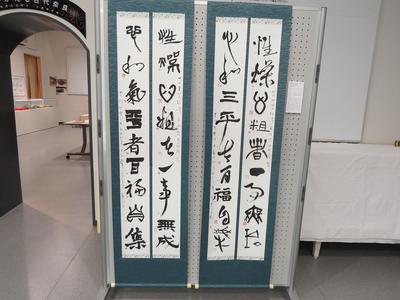 性燥心粗者一事無成
心和气平者百福自集
性燥心粗者一事無成
心和氣平者百福自集